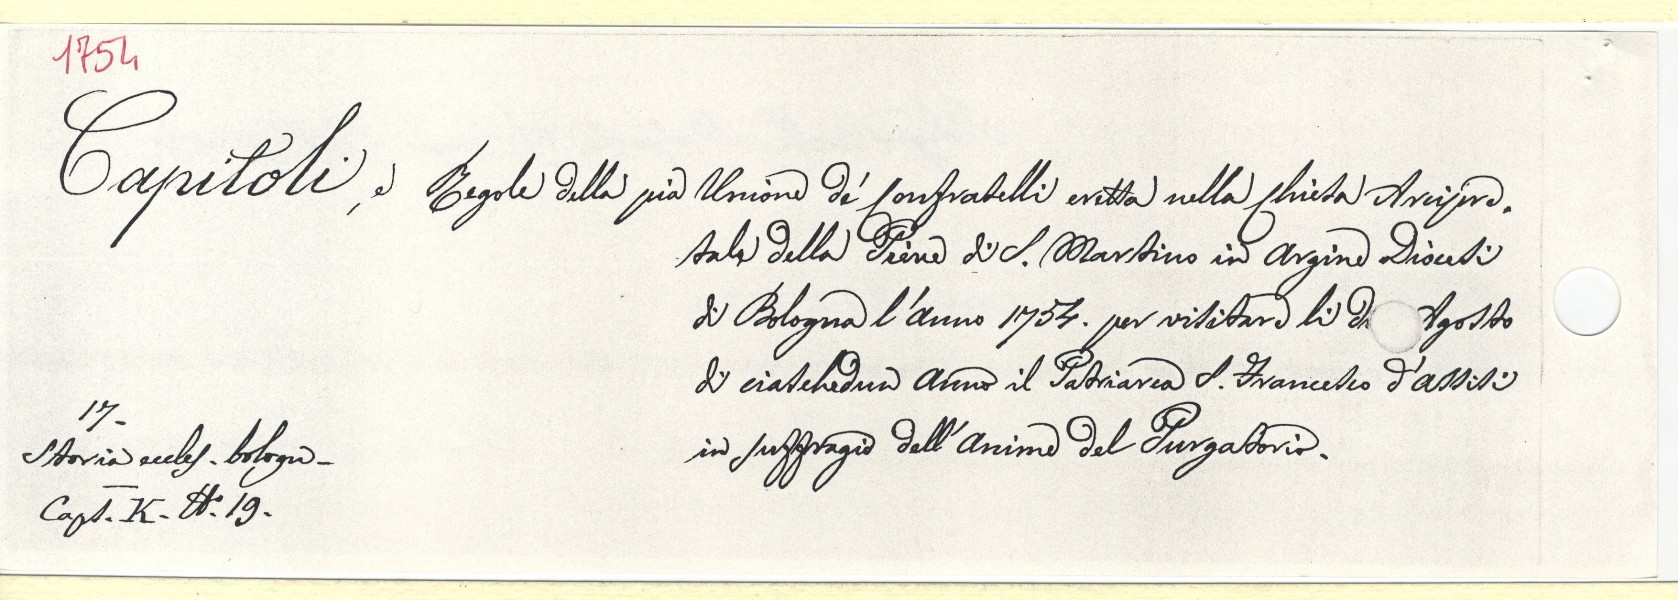 1754
Capitoli, e Regole della pia Unione de' Confratelli eretta nella Chiesa Arcipre.
tale della Pieve di S. Martino in Argine Diocesi
di Bologna l'anno 1754. per visitare li Agosto
di ciaschedun anno il Patriarca S. Francesco d'Assisi
in suffragio dell'anime del Purgatorio.
17-
Storia eccles. bologn-
Capt. K. N.° 19.